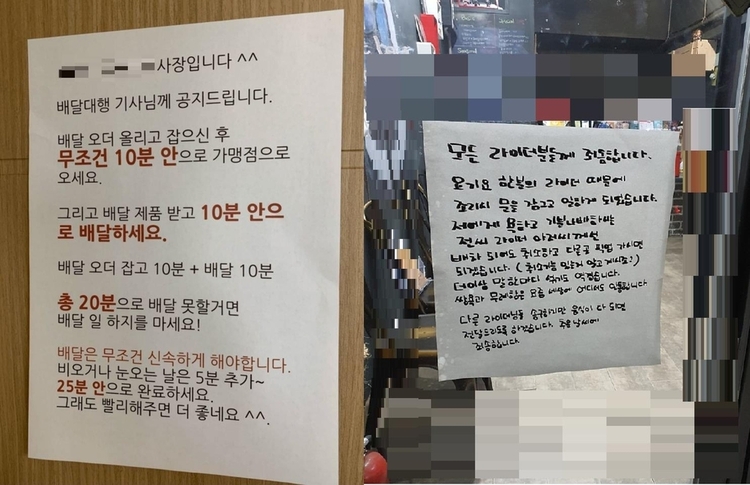 사장입니다 ^^
배달대행 기사님께 공지드립니다.
배달 오더 올리고 잡으신 후
무조건 10분 안으로 가맹점으로
오세요.
그리고 배달 제품 받고 10분 안으
로 배달하세요.
배달 오더 잡고 10분 + 배달 10분
총 20분으로 배달 못할거면
배달 일 하지를 마세요!
배달은 무조건 신속하게 해야합니다.
비오거나 눈오는 날은 5분 추가~
25분 안으로 완료하세요.
그래도 빨리해주면 더 좋네요 ^^.
모든 라이더분들께 죄송합니다.
요기요 한분의 라이더 때문에
조리시 문을 잠그고 일하게 되었습니다.
저에게 욕하고 기분나빠하신
전씨 라이더 아저씨께선
배차 되어도 취소하고 다른곳 픽업 가시면
되겠습니다. (취소가능 믿는지 않고 계시죠?)
더이상 말 한마디 섞기도 역겹습니다.
다른 라이더님들 송구하지만 음식이 다 되면
전달드리도록 하겠습니다. 추운날씨에
죄송합니다.